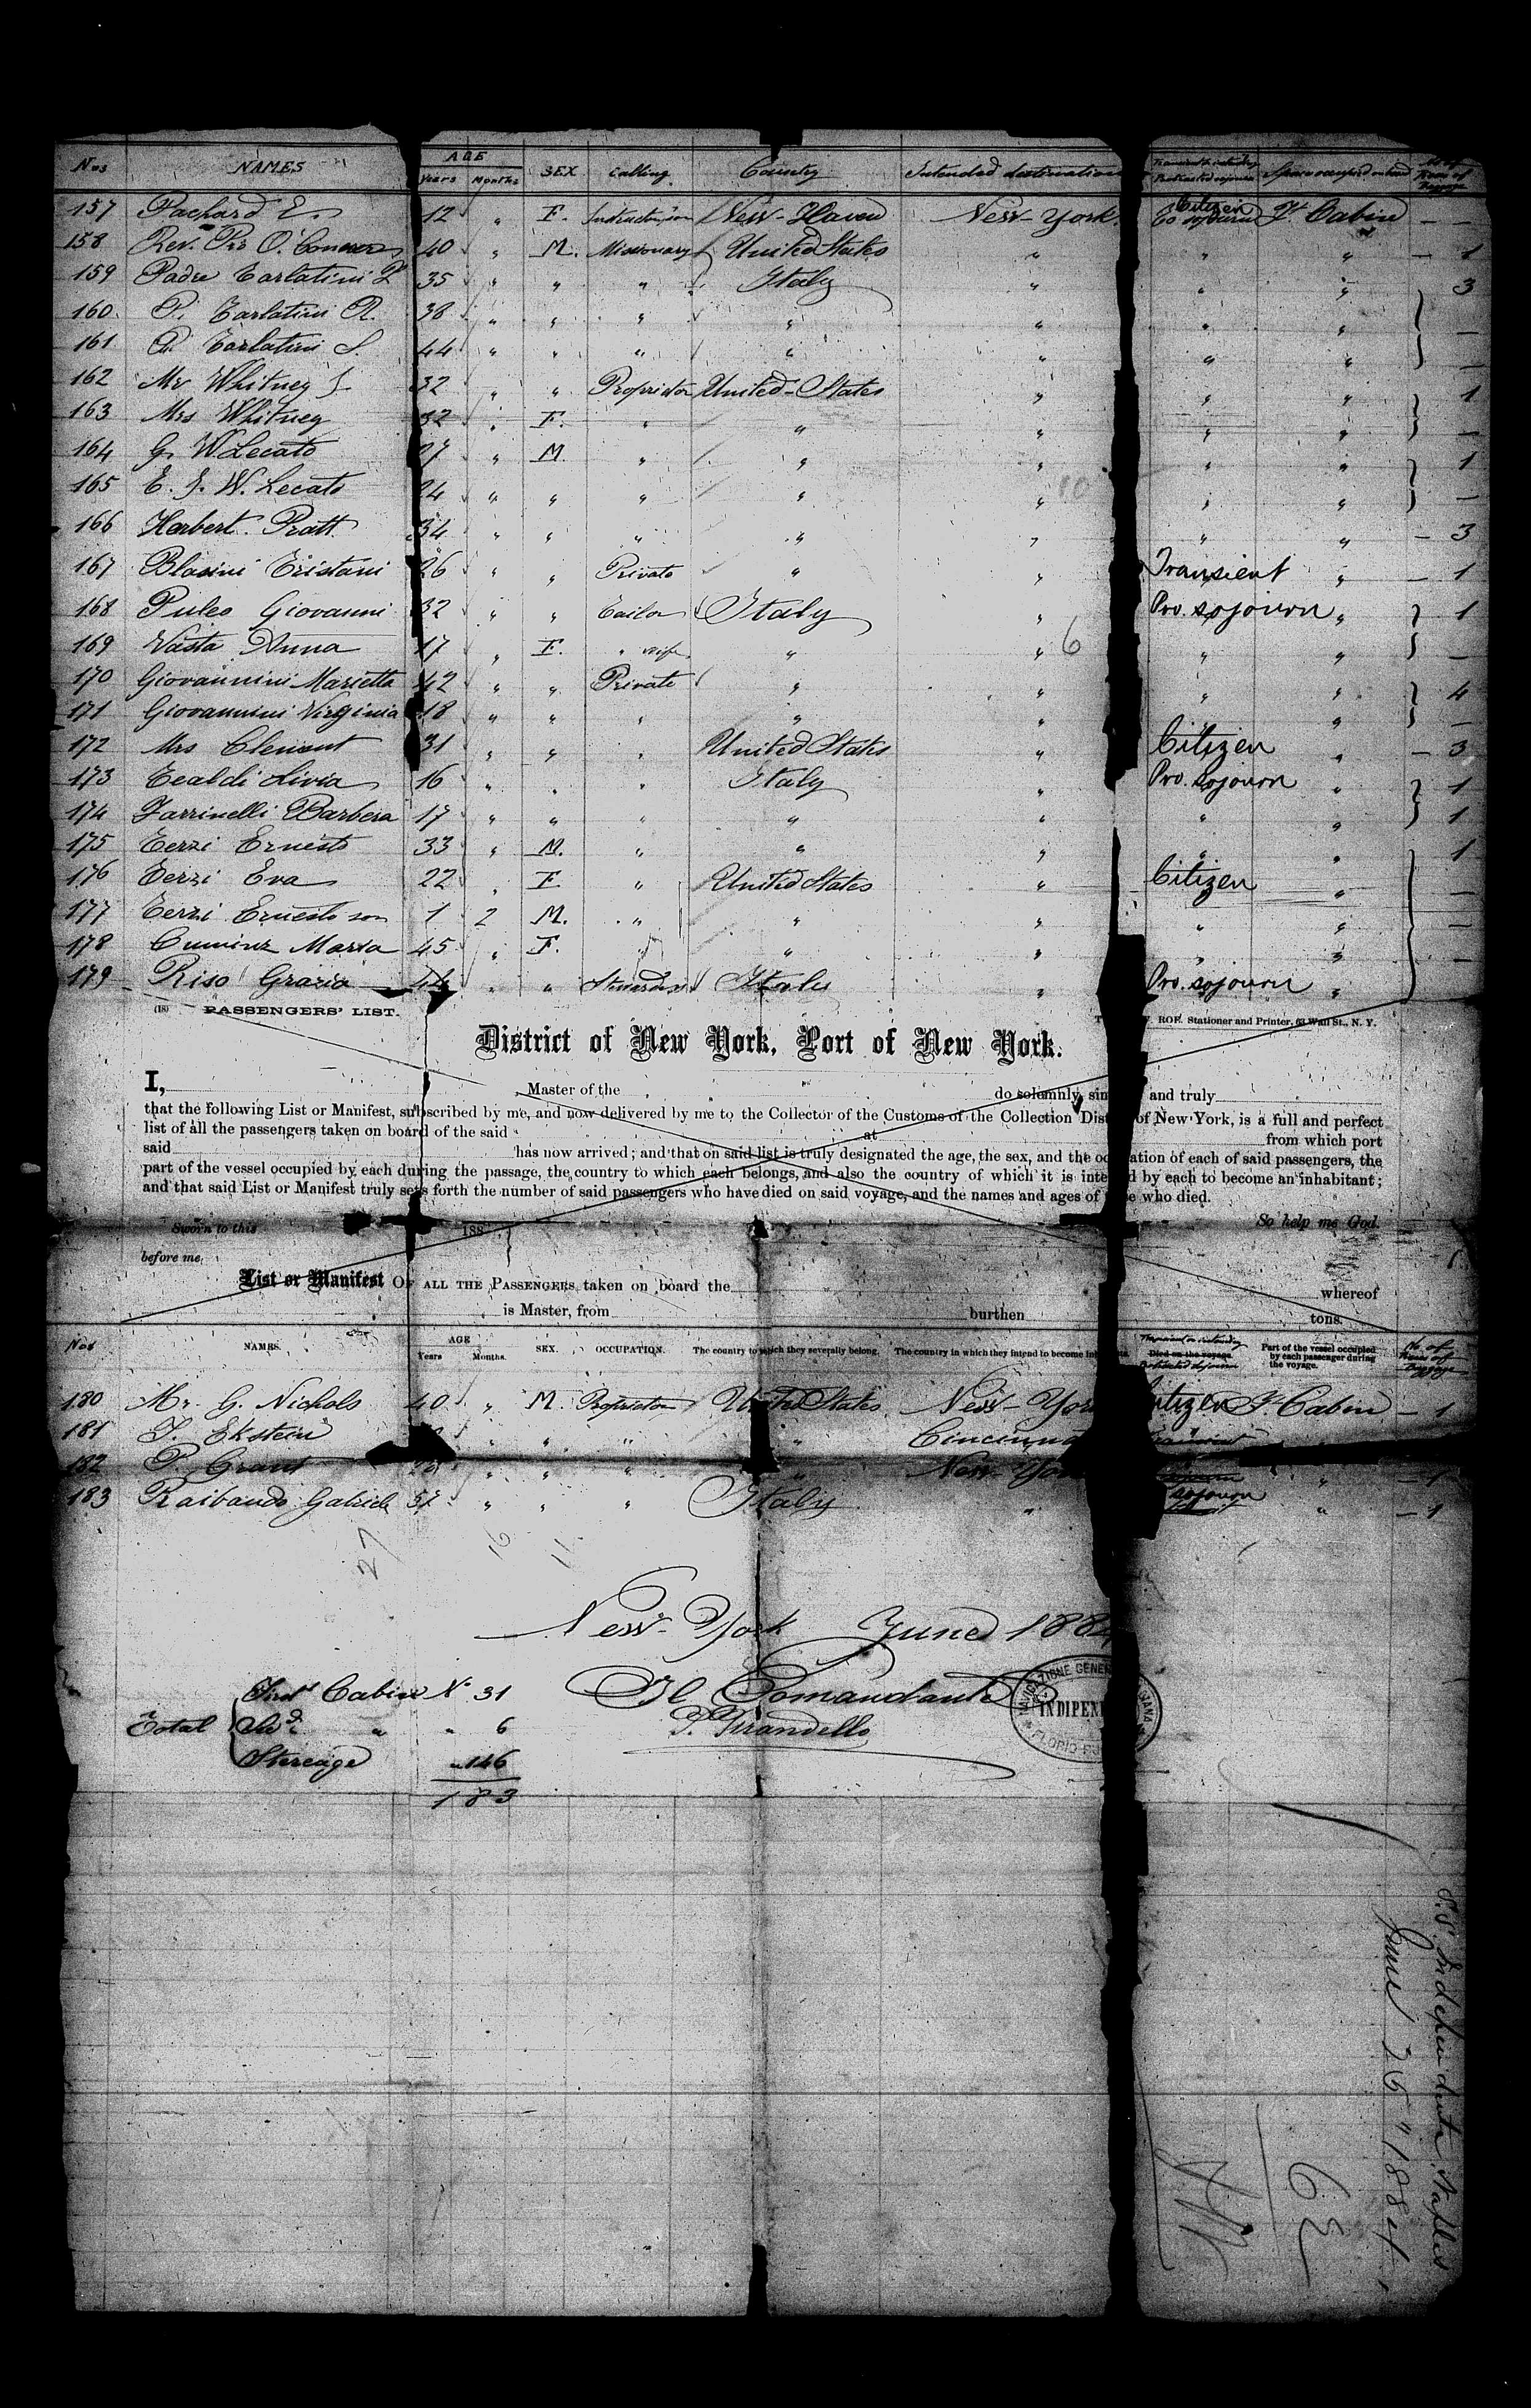 Nos NAMES AGE Years Months SEX Calling Country Intended destination Space occupied on board
157 Pachard E. 12 " F. New-Haven New-York Citizen So sojourn Ft Cabin —
158 Rev. O. Connor 40 " M. Missionary United States " " " — 1
159 Padre Tarlatini 35 " " " Italy " " " 3
160 P. Tarlatini R. 38 " " " " " " " —
161 P. Tarlatini S. 44 " " " " " " " —
162 Mr Whitney J. 32 " " Proprietor United-States " " " 1
163 Mrs Whitney 32 " F. " " " " " —
164 G. W Lecato 27 " M. " " " " " 1
165 E. J. W. Lecato 24 " " " " " " " —
166 Herbert Pratt 34 " " " " " " " — 3
167 Blasini Tristani 26 " " Private " " Transient " — 1
168 Puleo Giovanni 32 " " Tailor Italy " Pro. sojourn " 1
169 Vasta Anna 17 " F. " wife " " 6 " " —
170 Giovannini Marietta 42 " " Private " " " " 4
171 Giovannini Virginia 18 " " " " " " —
172 Mrs Clement 31 " " " United States " Citizen " — 3
173 Tealdi Livia 16 " " " Italy " Pro. sojourn " 1
174 Farrinelli Barbera 17 " " " " " " " 1
175 Terzi Ernesto 33 " M. " " " " " 1
176 Terzi Eva 22 " F " United States " Citizen " —
177 Terzi Ernesto son 1 2 M. " " " " " —
178 Maria 45 " F. " " " " —
179 Riso Grazia 44 " " Stewardess Italy " Pro. sojourn "
(18) PASSENGERS' LIST. ROE. Stationer and Printer, 63 Wall St., N. Y.
District of New York, Port of New York.
I, Master of the do solemnly, and truly
that the following List or Manifest, subscribed by me, and now delivered by me to the Collector of the Customs of the Collection Dist of New York, is a full and perfect
list of all the passengers taken on board of the said at from which port
said has now arrived; and that on said list is truly designated the age, the sex, and the oc ation of each of said passengers, the
part of the vessel occupied by each during the passage, the country to which each belongs, and also the country of which it is inte d by each to become an inhabitant;
and that said List or Manifest truly sets forth the number of said passengers who have died on said voyage, and the names and ages of who died.
Sworn to this 188 So help me God.
before me
List or Manifest OF ALL THE PASSENGERS taken on board the whereof
is Master, from burthen tons.
Nos NAMES. AGE Years Months. SEX. OCCUPATION. The country to which they severally belong. The country in which they intend to become Died on the voyage. Part of the vessel occupied by each passenger during the voyage.
180 Mr. G. Nichols 40 " M. Proprietor United States New-York Citizen Ft Cabin — 1
181 J. Ekstein " " " " Cincinna
182 P. Grant " " " " New-York " — 1
183 Raibaudo Gabriele 57 " " " Italy " sojourn " — 1
27 16 11
New-York June 1884
Il Comandante
P. Pirandello
INDIPEN
Total First Cabin No 31
" " 6
Steerage " 146
183
S.S. Indipendente Naples
June 26 " 1884